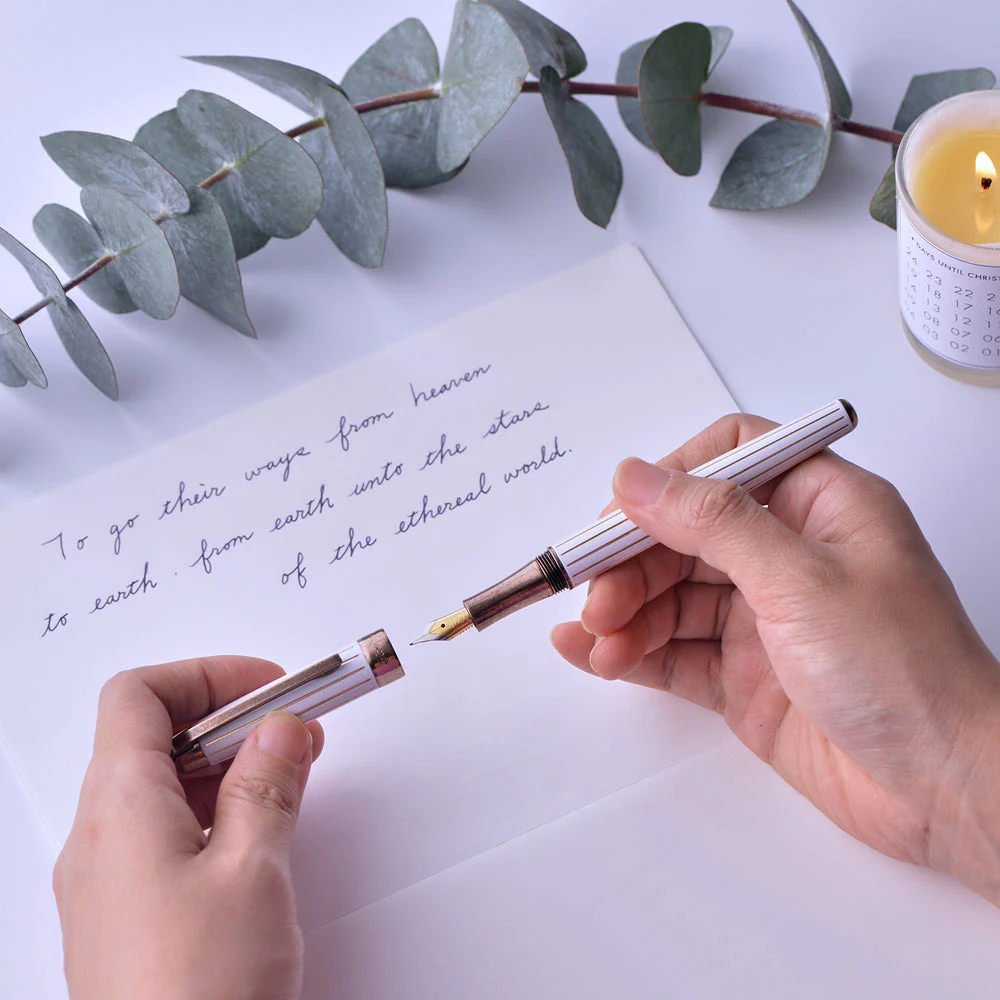 To go their ways from heaven
to earth . from earth unto the stars
of the ethereal world.
• DAYS UNTIL CHRIST
24 23 22 2
19 18 17 16
14 13 12 1
08 07 06
03 02 01